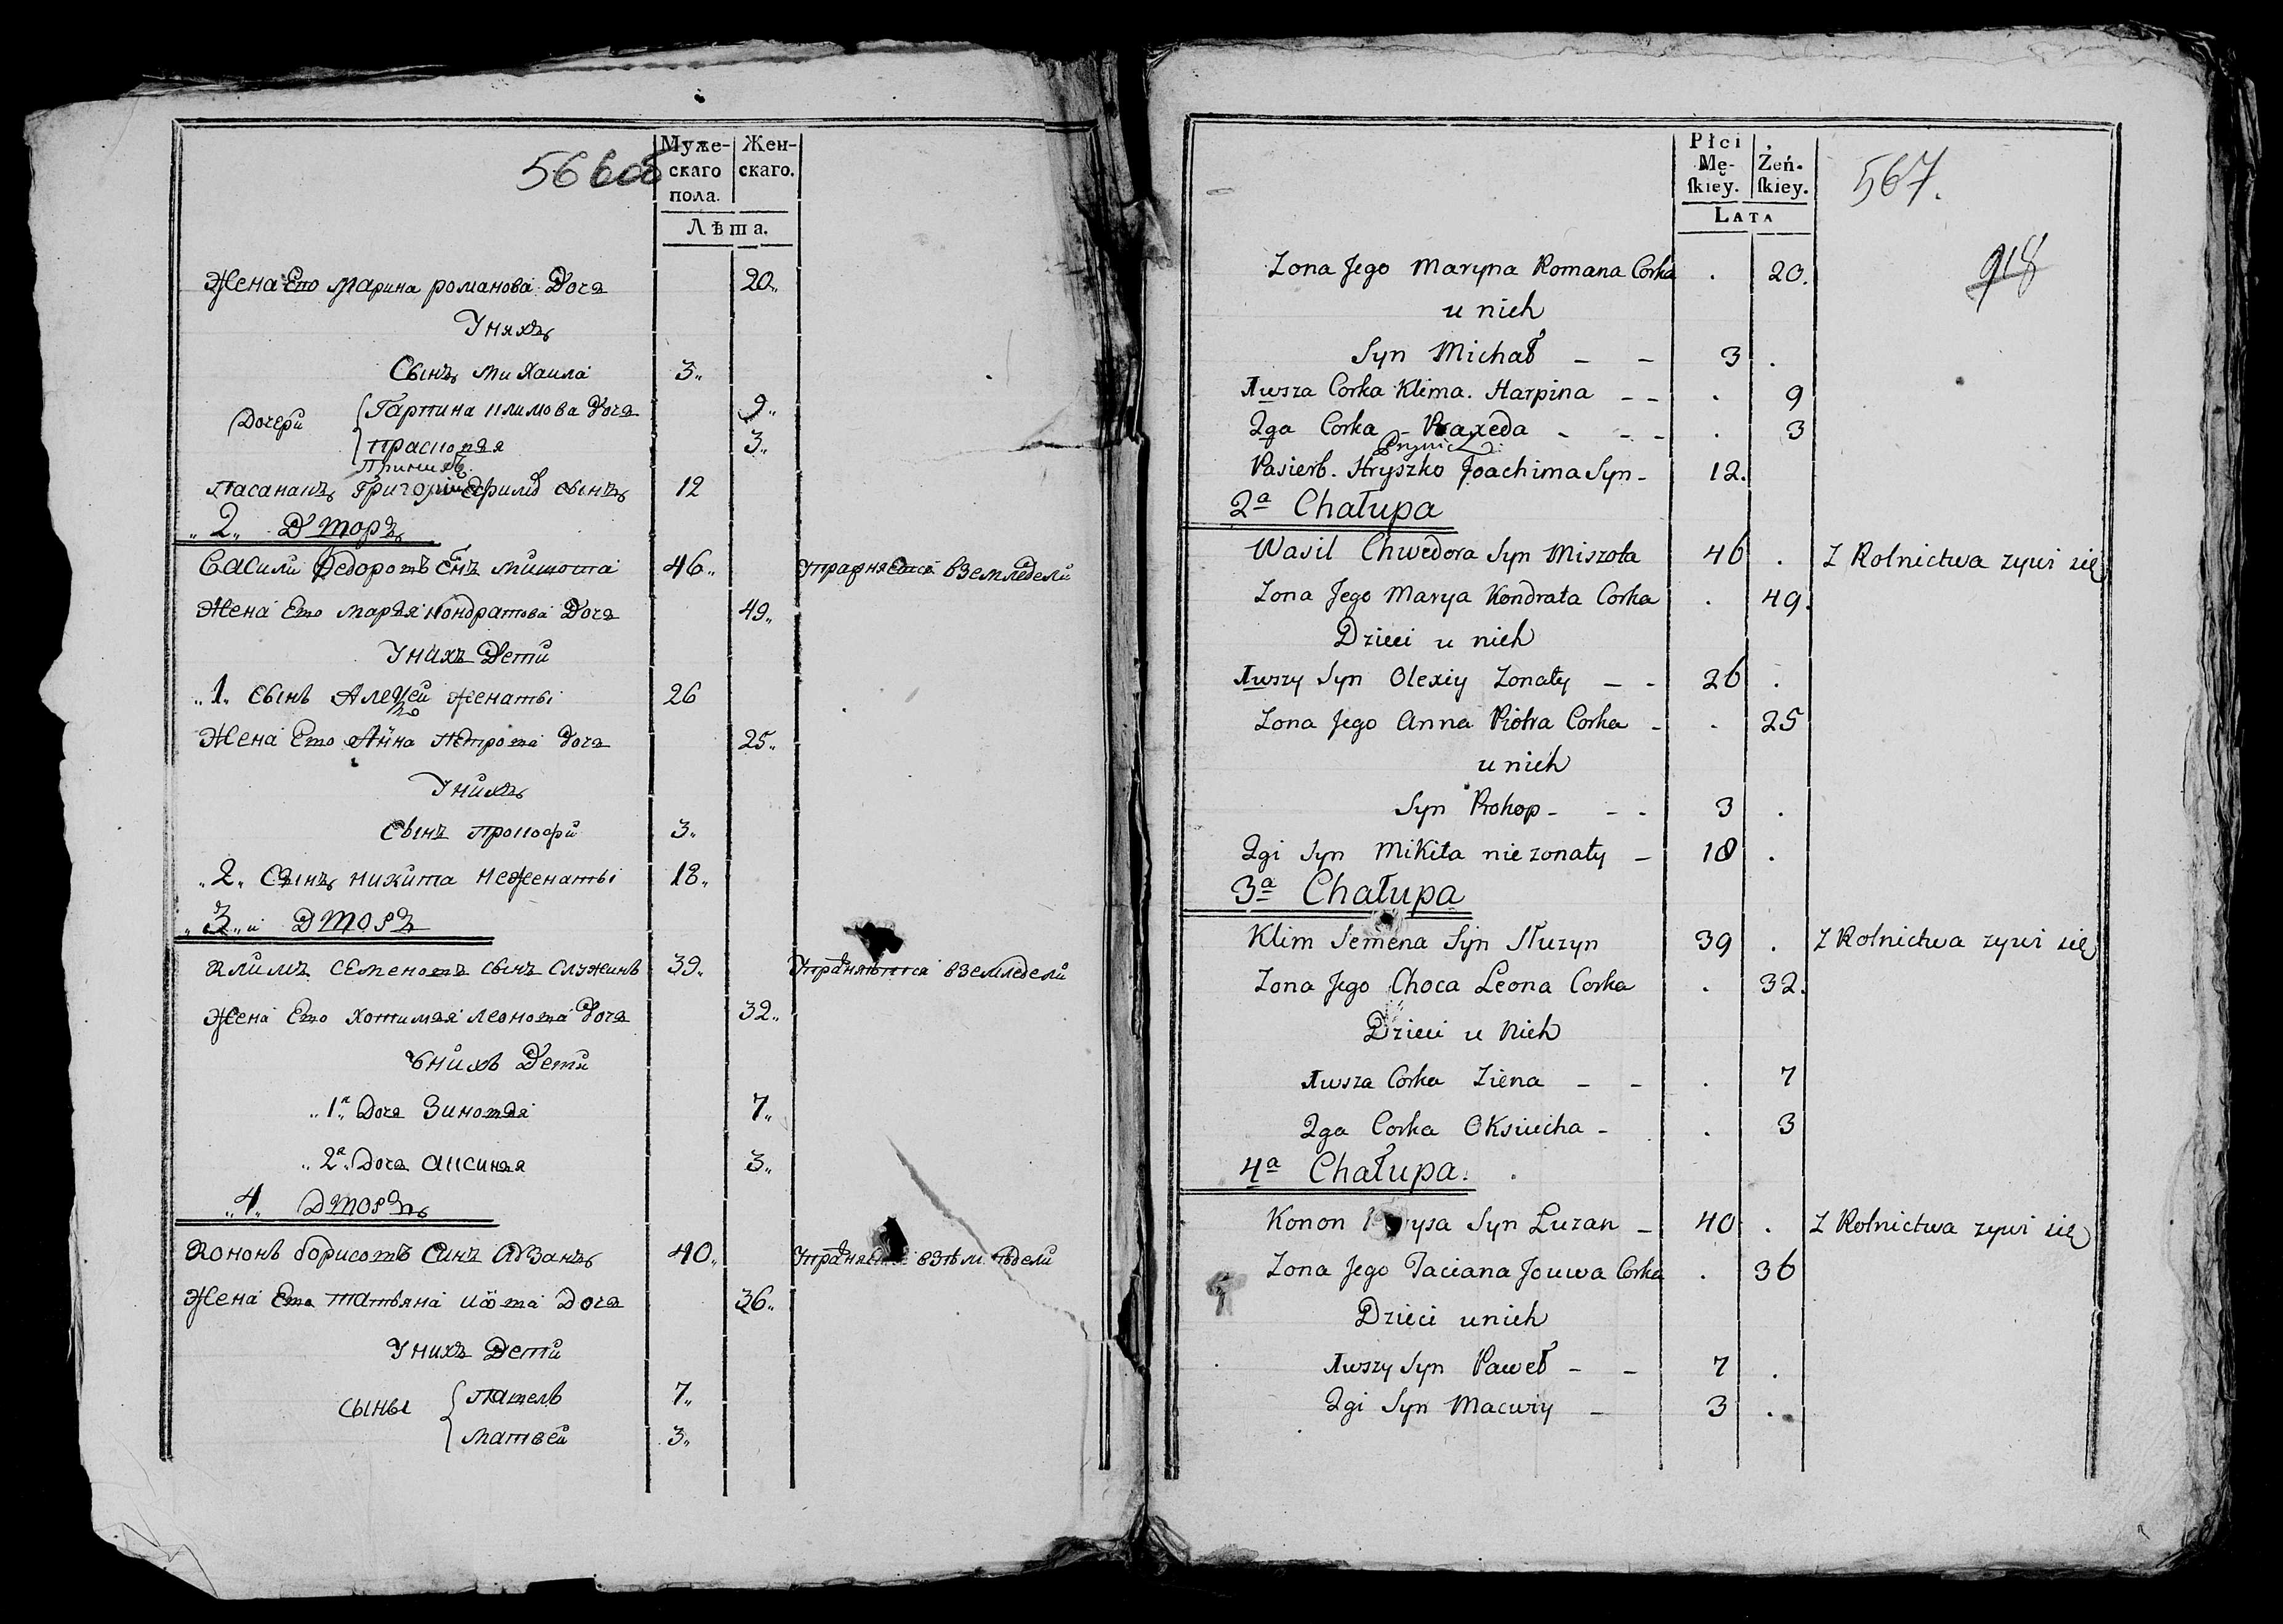 566об
Муже-
скаго
пола.
Жен-
скаго.
Лѣта.
Жена Его Марина романова Доча 20
Унихъ
Сынъ михаила 3
Дочери Гарпина климова Доча 9
прасковя 3
Приимъ
Пасанакъ Григорій Сынъ 12
2 Дворъ
Васили Федоровъ Сынъ мишота 46 Упражняется вземледели
Жена Его маря кондратова Доча 49
Унихъ Дети
1 Сынъ Алексей женаты 26
Жена Его Анна Петрова Доча 25
Унихъ
Сынъ прокофи 3
2 Сынъ никита неженаты 18
3 Дворъ
Климъ Семеновъ Сынъ Служинъ 39 Упражняется вземледели
Жена Его хотимая леонова Доча 32
Унихъ Дети
1я Доча Зиновя 7
2я Доча аксиня 3
4 Дворъ
Кононъ борисовъ Синъ лузанъ 40 Упражняется взем ледели
Жена Ево татьяна иова Доча 36
Унихъ Дети
Сыны павелъ 7
матвей 3
Płci
Mę-
skiey.
Żeń-
skiey.
LATA
567.
918
Zona Jego Maryna Romana Corka . 20.
u nich
Syn Michał – – 3 .
1wsza Corka Klima. Harpina – – . 9
2ga Corka – Praxeda – – – . 3
Pasierb. Hryszko Joachima Syn – 12.
2a Chałupa
Wasil Chwedora Syn Miszota 46 . Z Rolnictwa zywi się
Zona Jego Marya Kondrata Corka . 49.
Dzieci u nich
1wszy Syn Olexiy Zonaty – – 26 .
Zona Jego Anna Piotra Corka – . 25
u nich
Syn Prokop – – – 3 .
2gi Syn Mikita nie zonaty – 18 .
3a Chałupa
Klim Semena Syn Słuzyn 39 . Z Rolnictwa zywi się
Zona Jego Choca Leona Corka . 32.
Dzieci u Nich
1wsza Corka Ziena – – . 7
2ga Corka Oksiucha – . 3
4a Chałupa.
Konon Syn Luzan – 40 . Z Rolnictwa zywi się
Zona Jego Taciana Jouwa Corka . 36
Dzieci u nich
1wszy Syn Paweł – – 7 .
2gi Syn Macwiy – 3 .